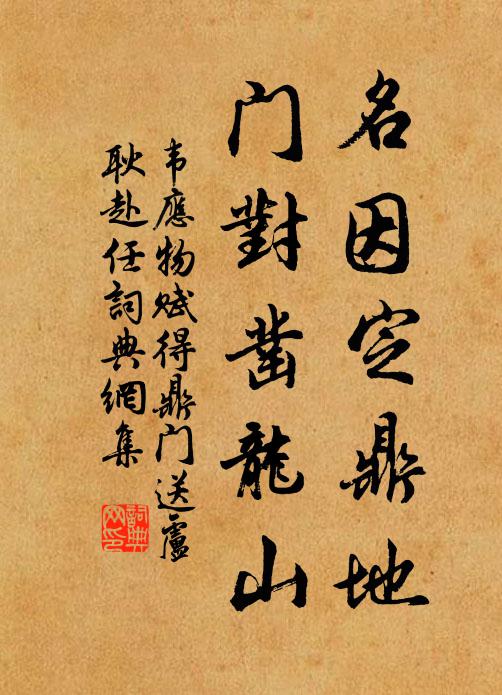 名因定鼎地
门對凿龍山
韦應物赋得鼎门送盧
耿赴任詞典網集
詞典网印